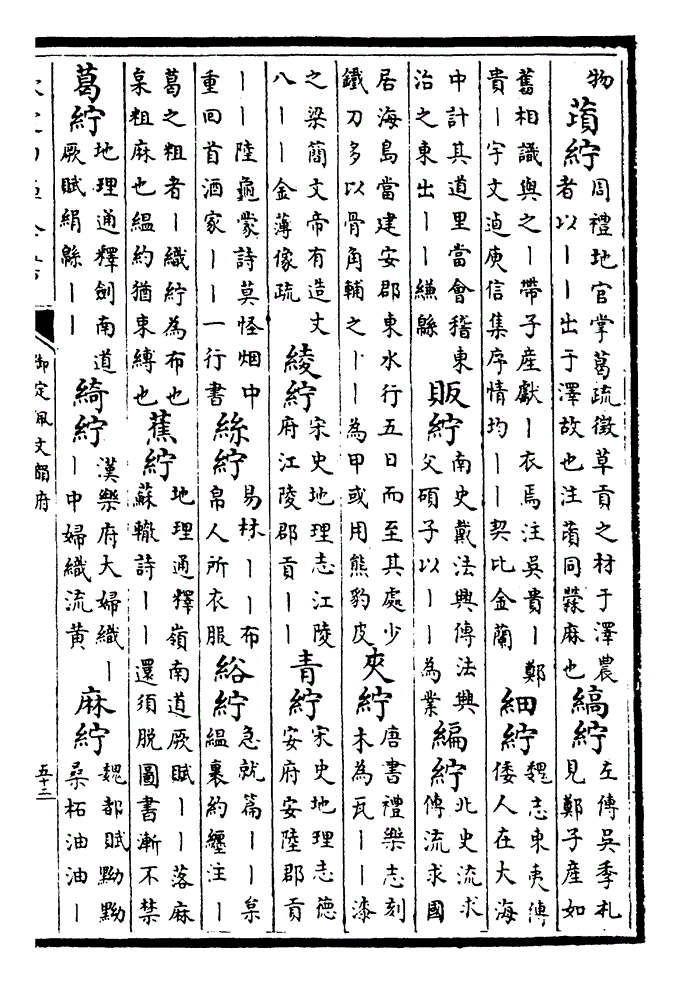 物䔛紵周禮地官掌葛疏徵草貢之材于澤農者以丨丨出于澤故也注䔛同檾麻也縞紵左傳吳季札見鄭子產如
舊相識與之丨帶子產獻丨衣焉注吳貴丨鄭貴丨宇文逌庾信集序情均丨丨契比金蘭細紵魏志東夷傳倭人在大海
中計其道里當會稽東治之東出丨丨縑緜販紵南史戴法興傳法興父碩子以丨丨為業編紵北史流求傳流求國
居海島當建安郡東水行五日而至其處少鐵刀多以骨角輔之丨丨為甲或用熊豹皮夾紵唐書禮樂志刻木為瓦丨丨漆
之梁簡文帝有造丈八丨丨金薄像疏綾紵宋史地理志江陵府江陵郡貢丨丨青紵宋史地理志德安府安陸郡貢
丨丨陸龜蒙詩莫怪烟中重回首酒家丨丨一行書絲紵易林丨丨布帛人所衣服綌紵急就篇丨丨枲縕裹約纏注丨
葛之粗者丨織紵為布也枲粗麻也縕約猶束縛也蕉紵地理通釋嶺南道厥賦丨丨落麻蘇轍詩丨丨還須脫圖書漸不禁
葛紵地理通釋劍南道厥賦絹緜丨丨綺紵漢樂府大婦織丨丨中婦織流黃麻紵魏都賦黝黝桑柘油油丨
御定佩文韻府
五十二